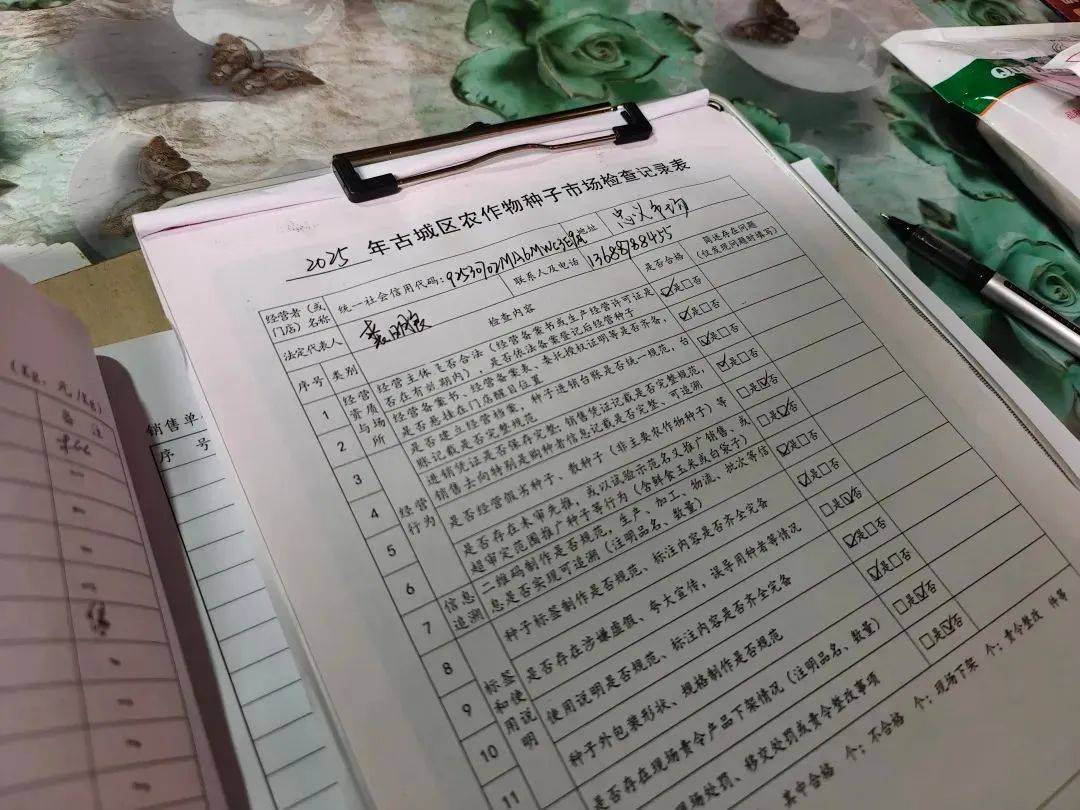 2025 年古城区农作物种子市场检查记录表
经营者（或门店）名称
统一社会信用代码：
地址
忠义市场
法定代表人
联系人及电话
13688788455
是否合格
简述存在问题（仅发现问题时填写）
序号 类别 检查内容
1 经营资质与场所 经营主体是否合法（经营备案书或生产经营许可证是否在有效期内），是否依法备案登记后经营种子 ☑是□否
2 经营备案书、经营备案表、委托授权证明等是否齐备，是否悬挂在门店醒目位置 ☑是□否
3 经营行为 是否建立经营档案，种子进销台账是否统一规范，台账记载是否完整规范 ☑是□否
进销凭证是否保存完整，销售凭证记载是否完整规范，销售去向特别是购种者信息记载是否完整、可追溯
4 是否经营假劣种子、散种子（非主要农作物种子）等 □是☑否
5 是否存在未审先推，或以试验示范名义推广销售、或超审定范围推广种子等行为（含鲜食玉米或白袋子） □是☑否
6 信息追溯 二维码制作是否规范，生产、加工、物流、批次等信息是否实现可追溯（注明品名、数量） ☑是□否
7 标签和使用说明 种子标签制作是否规范、标注内容是否齐全完备 ☑是□否
8 是否存在涉嫌虚假、夸大宣传，误导用种者等情况 □是☑否
9 使用说明是否规范、标注内容是否齐全完备 ☑是□否
10 种子外包装形状、规格制作是否规范 ☑是□否
11 是否存在现场责令产品下架情况（注明品名、数量） □是☑否
现场处罚、移交处罚或责令整改事项 □是☑否
其中合格 个；不合格 个；现场下架 个；责令整改
销售单
序 号
备 注